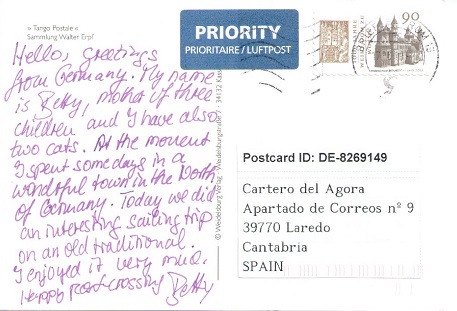 » Tango Postale «
Sammlung Walter Erpf
PRIORITY
PRIORITAIRE / LUFTPOST
90
Hello, greetings
from Germany. My name
is Betty, mother of three
children and I have also
two cats. At the moment
I spent some days in a
wondrful town in the North
of Germany. Today we did
an interesting sailing trip
on an old traditional.
I enjoyed it very much.
Happy postcrossing Betty
Postcard ID: DE-8269149
Cartero del Agora
Apartado de Correos nº 9
39770 Laredo
Cantabria
SPAIN